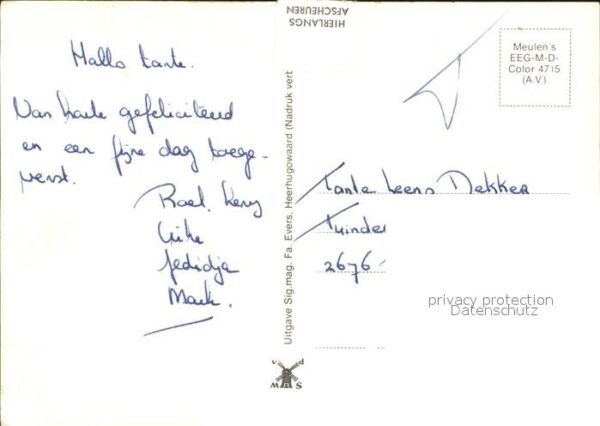 Hallo tante.
Van harte gefeliciteerd
en een fijne dag toege-
wenst.
Roel Kerry
Jedidja
Mark.
HIERLANGS
AFSCHEUREN
Uitgave Sig.mag. Fa. Evers, Heerhugowaard (Nadruk verb
Meulen's
EEG-M-D-
Color 4715
(A.V)
Tante Leens Dekker
Tuinder
2676
privacy protection
Datenschutz